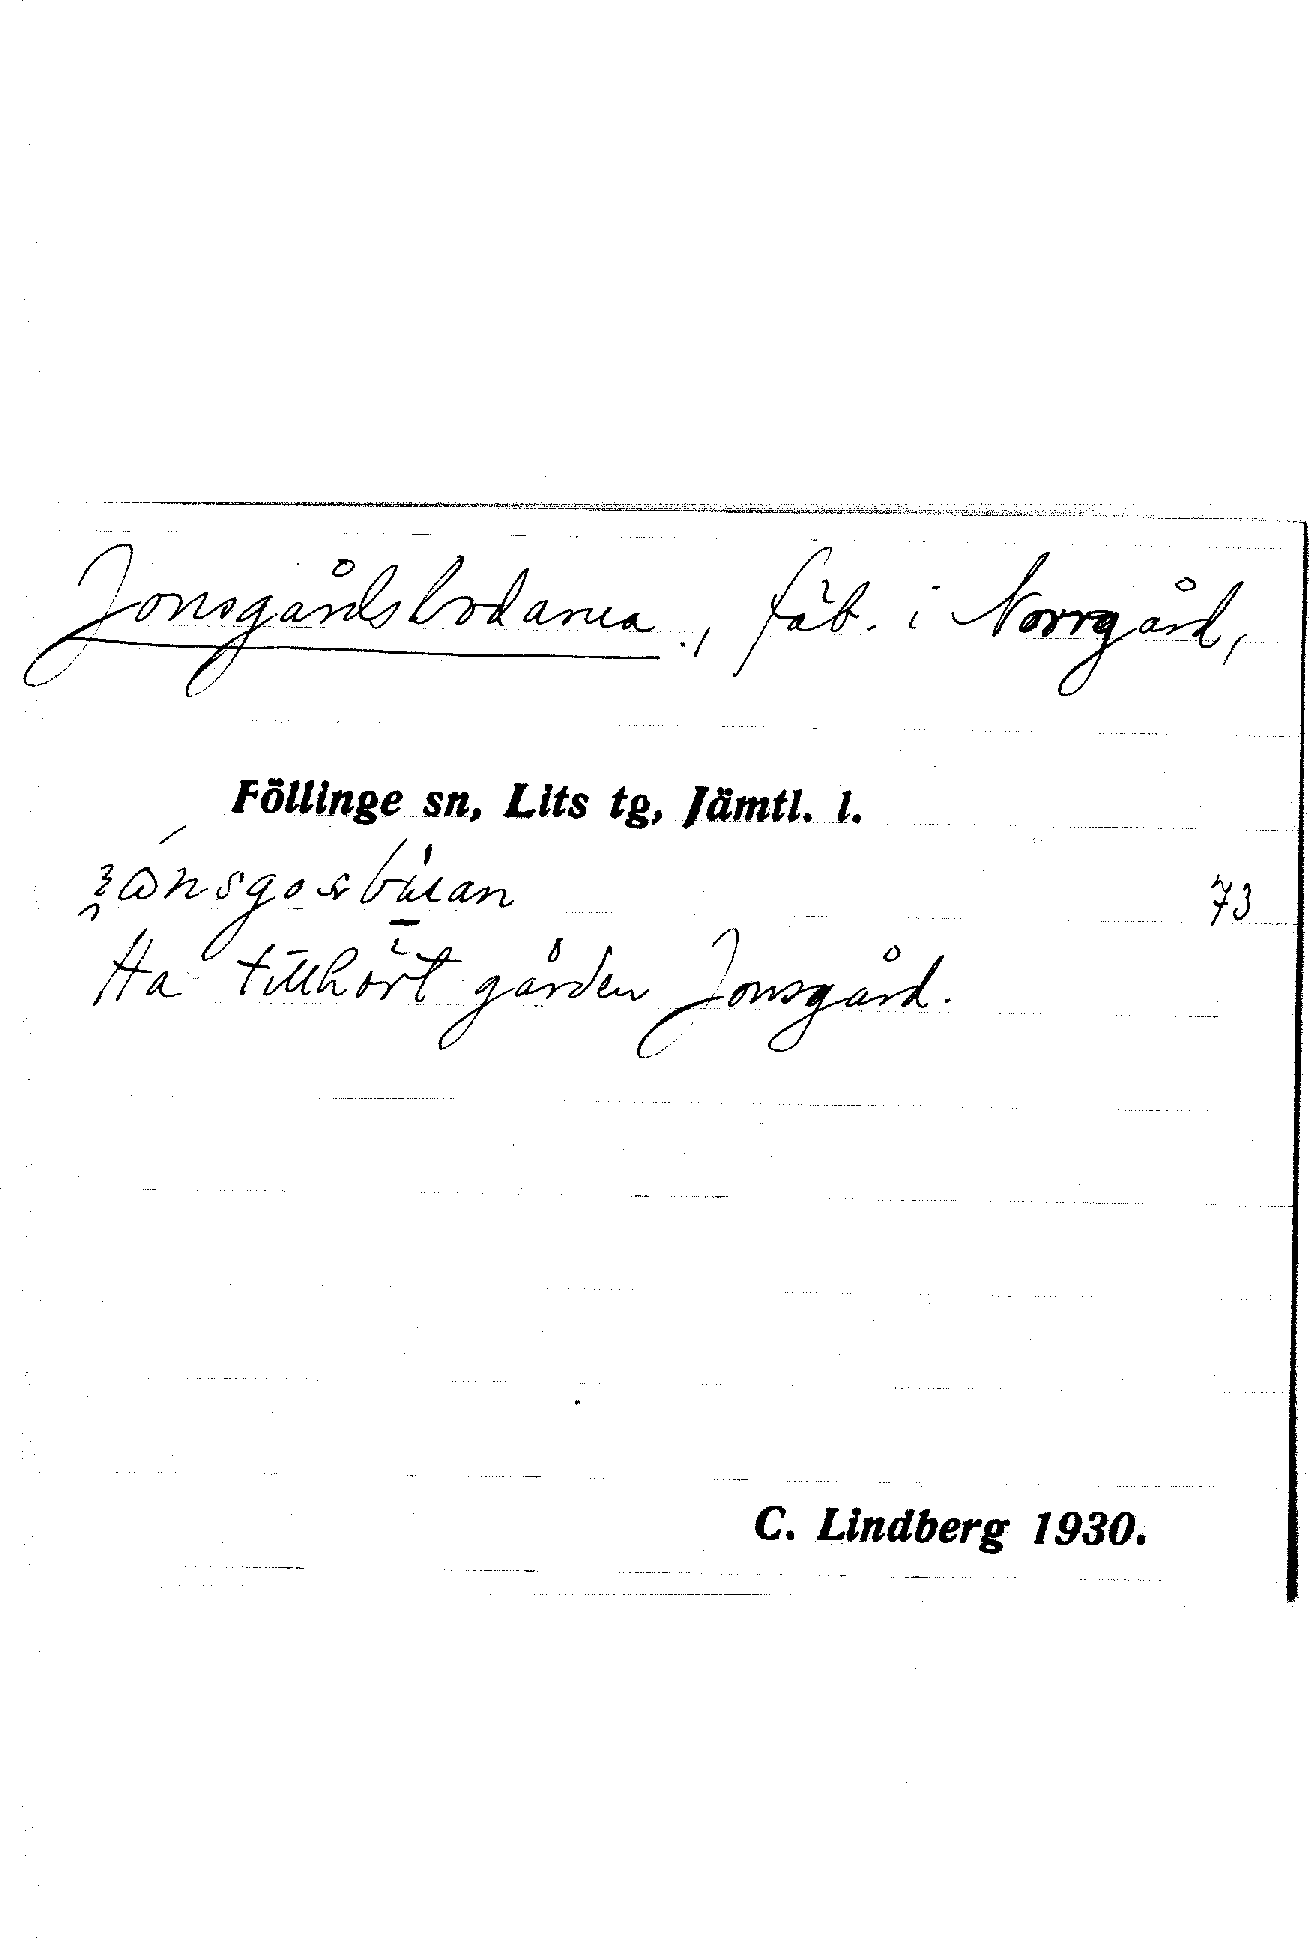 Jonsgårdsbodarna., fäb. i Norrgård,
Föllinge sn, Lits tg, Jämtl. l.
73
Ha tillhört gården Jonsgård.
C. Lindberg 1930.